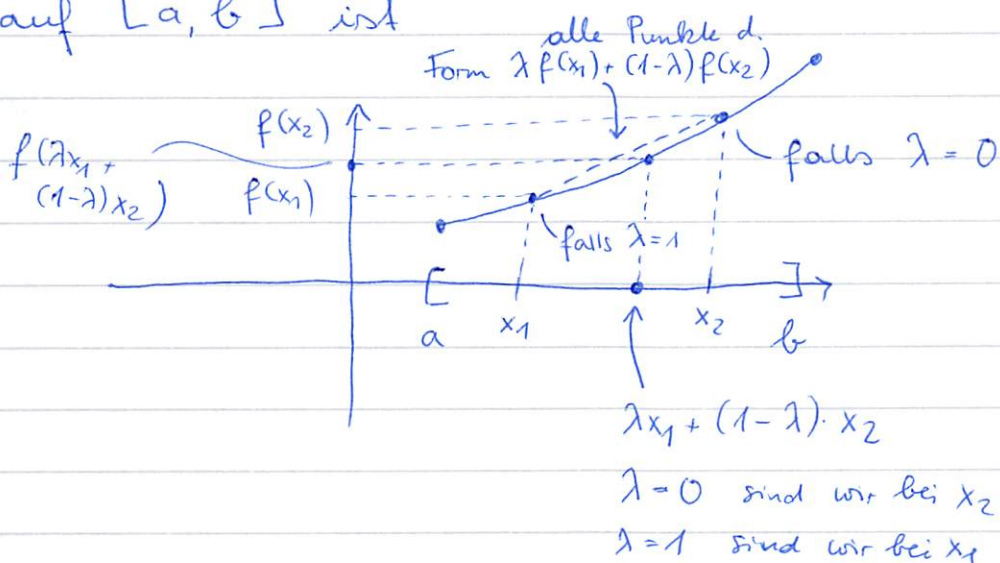 auf [a, b] ist
alle Punkte d.
Form λ f(x₁) + (1-λ) f(x₂)
f(x₂)
f(λx₁ +
(1-λ)x₂)
f(x₁)
falls λ = 0
falls λ=1
[
]
a
x₁
x₂
b
λx₁ + (1-λ)· x₂
λ=0 sind wir bei x₂
λ=1 sind wir bei x₁